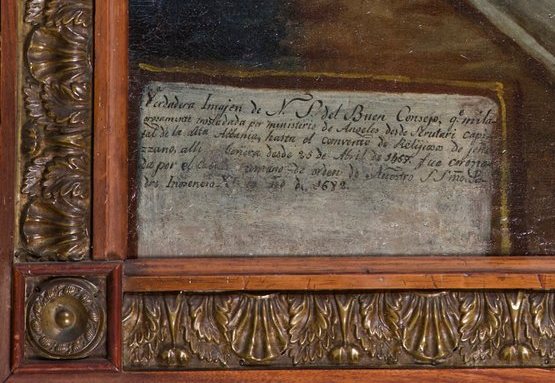 Verdadera Imagen de N. S. del Buen Consejo, q.e mila
grosamente trasladada por ministerio de Angeles desde Scutari capi
tal de la Alta Albania, hasta el convento de Religiosos de Jena
zzano, alli se venera desde 25 de Abril de 1467. fue corona
da por el Cabildo Romano de orden de Nuestro S.S.mo Pa
dre Inocencio XI en de 1682.